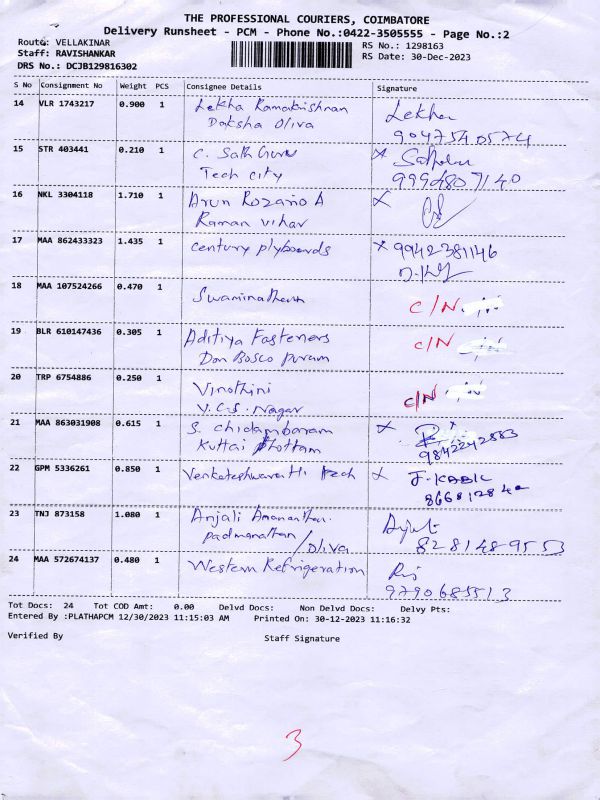 THE PROFESSIONAL COURIERS, COIMBATORE
Delivery Runsheet - PCM - Phone No.:0422-3505555 - Page No.:2
Route: VELLAKINAR
Staff: RAVISHANKAR
DRS No.: DCJB129816302
RS No.: 1298163
RS Date: 30-Dec-2023
S No Consignment No Weight PCS Consignee Details Signature
14 VLR 1743217 0.900 1 Lekha Ramakrishnan Lekha
Daksha Oliva 9047540574
15 STR 403441 0.210 1 C. Sath Guru x
Tech city 9994807140
16 NKL 3304118 1.710 1 Arun Rozario A x
Raman vihar
17 MAA 862433323 1.435 1 century plyboards x 9942381146
18 MAA 107524266 0.470 1 Swaminathan C/N
19 BLR 610147436 0.305 1 Aditiya Fasteners C/N
Don Bosco puram
20 TRP 6754886 0.250 1 Vinothini C/N
V.C.S. Nagar
21 MAA 863031908 0.615 1 S. Chidambaram x
Kuttai thottam 9842242883
22 GPM 5336261 0.850 1 Venkateshwara Hi tech x J. KABIL
23 TNJ 873158 1.080 1 Anjali
padmanathan / Oliva 828148-9553
24 MAA 572674137 0.480 1 Western Refrigeration
9790685513
Tot Docs: 24 Tot COD Amt: 0.00 Delvd Docs: Non Delvd Docs: Delvy Pts:
Entered By :PLATHAPCM 12/30/2023 11:15:03 AM Printed On: 30-12-2023 11:16:32
Verified By Staff Signature
3